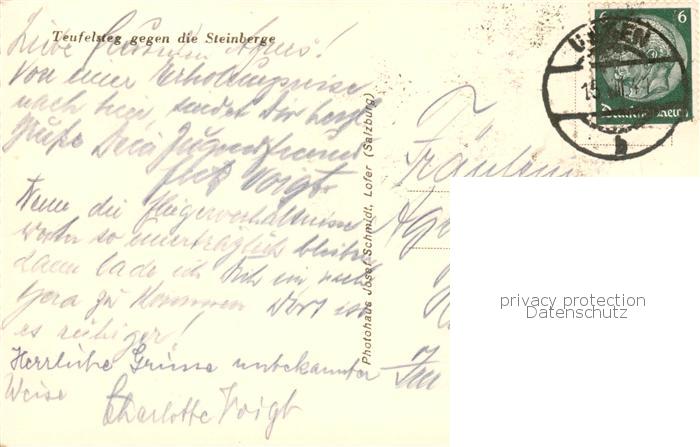 Teufelsteg gegen die Steinberge
Liebe Agnes!
Von einer Erholungsreise
nach hier, sendet Dir herzl.
Grüße Dein Jugendfreund
Voigt.
Wenn die Fliegerverhältnisse
weiter so unerträglich bleiben
dann lade ich Dich ein nach
Gera zu kommen Dort ist
es ruhiger!
Herrliche Grüsse unbekannter
Weise Charlotte Voigt
Photohaus Josef Schmidt, Lofer (Salzburg)
Fräulein
6
Deutsches Reich
UNKEN
b
privacy protection
Datenschutz